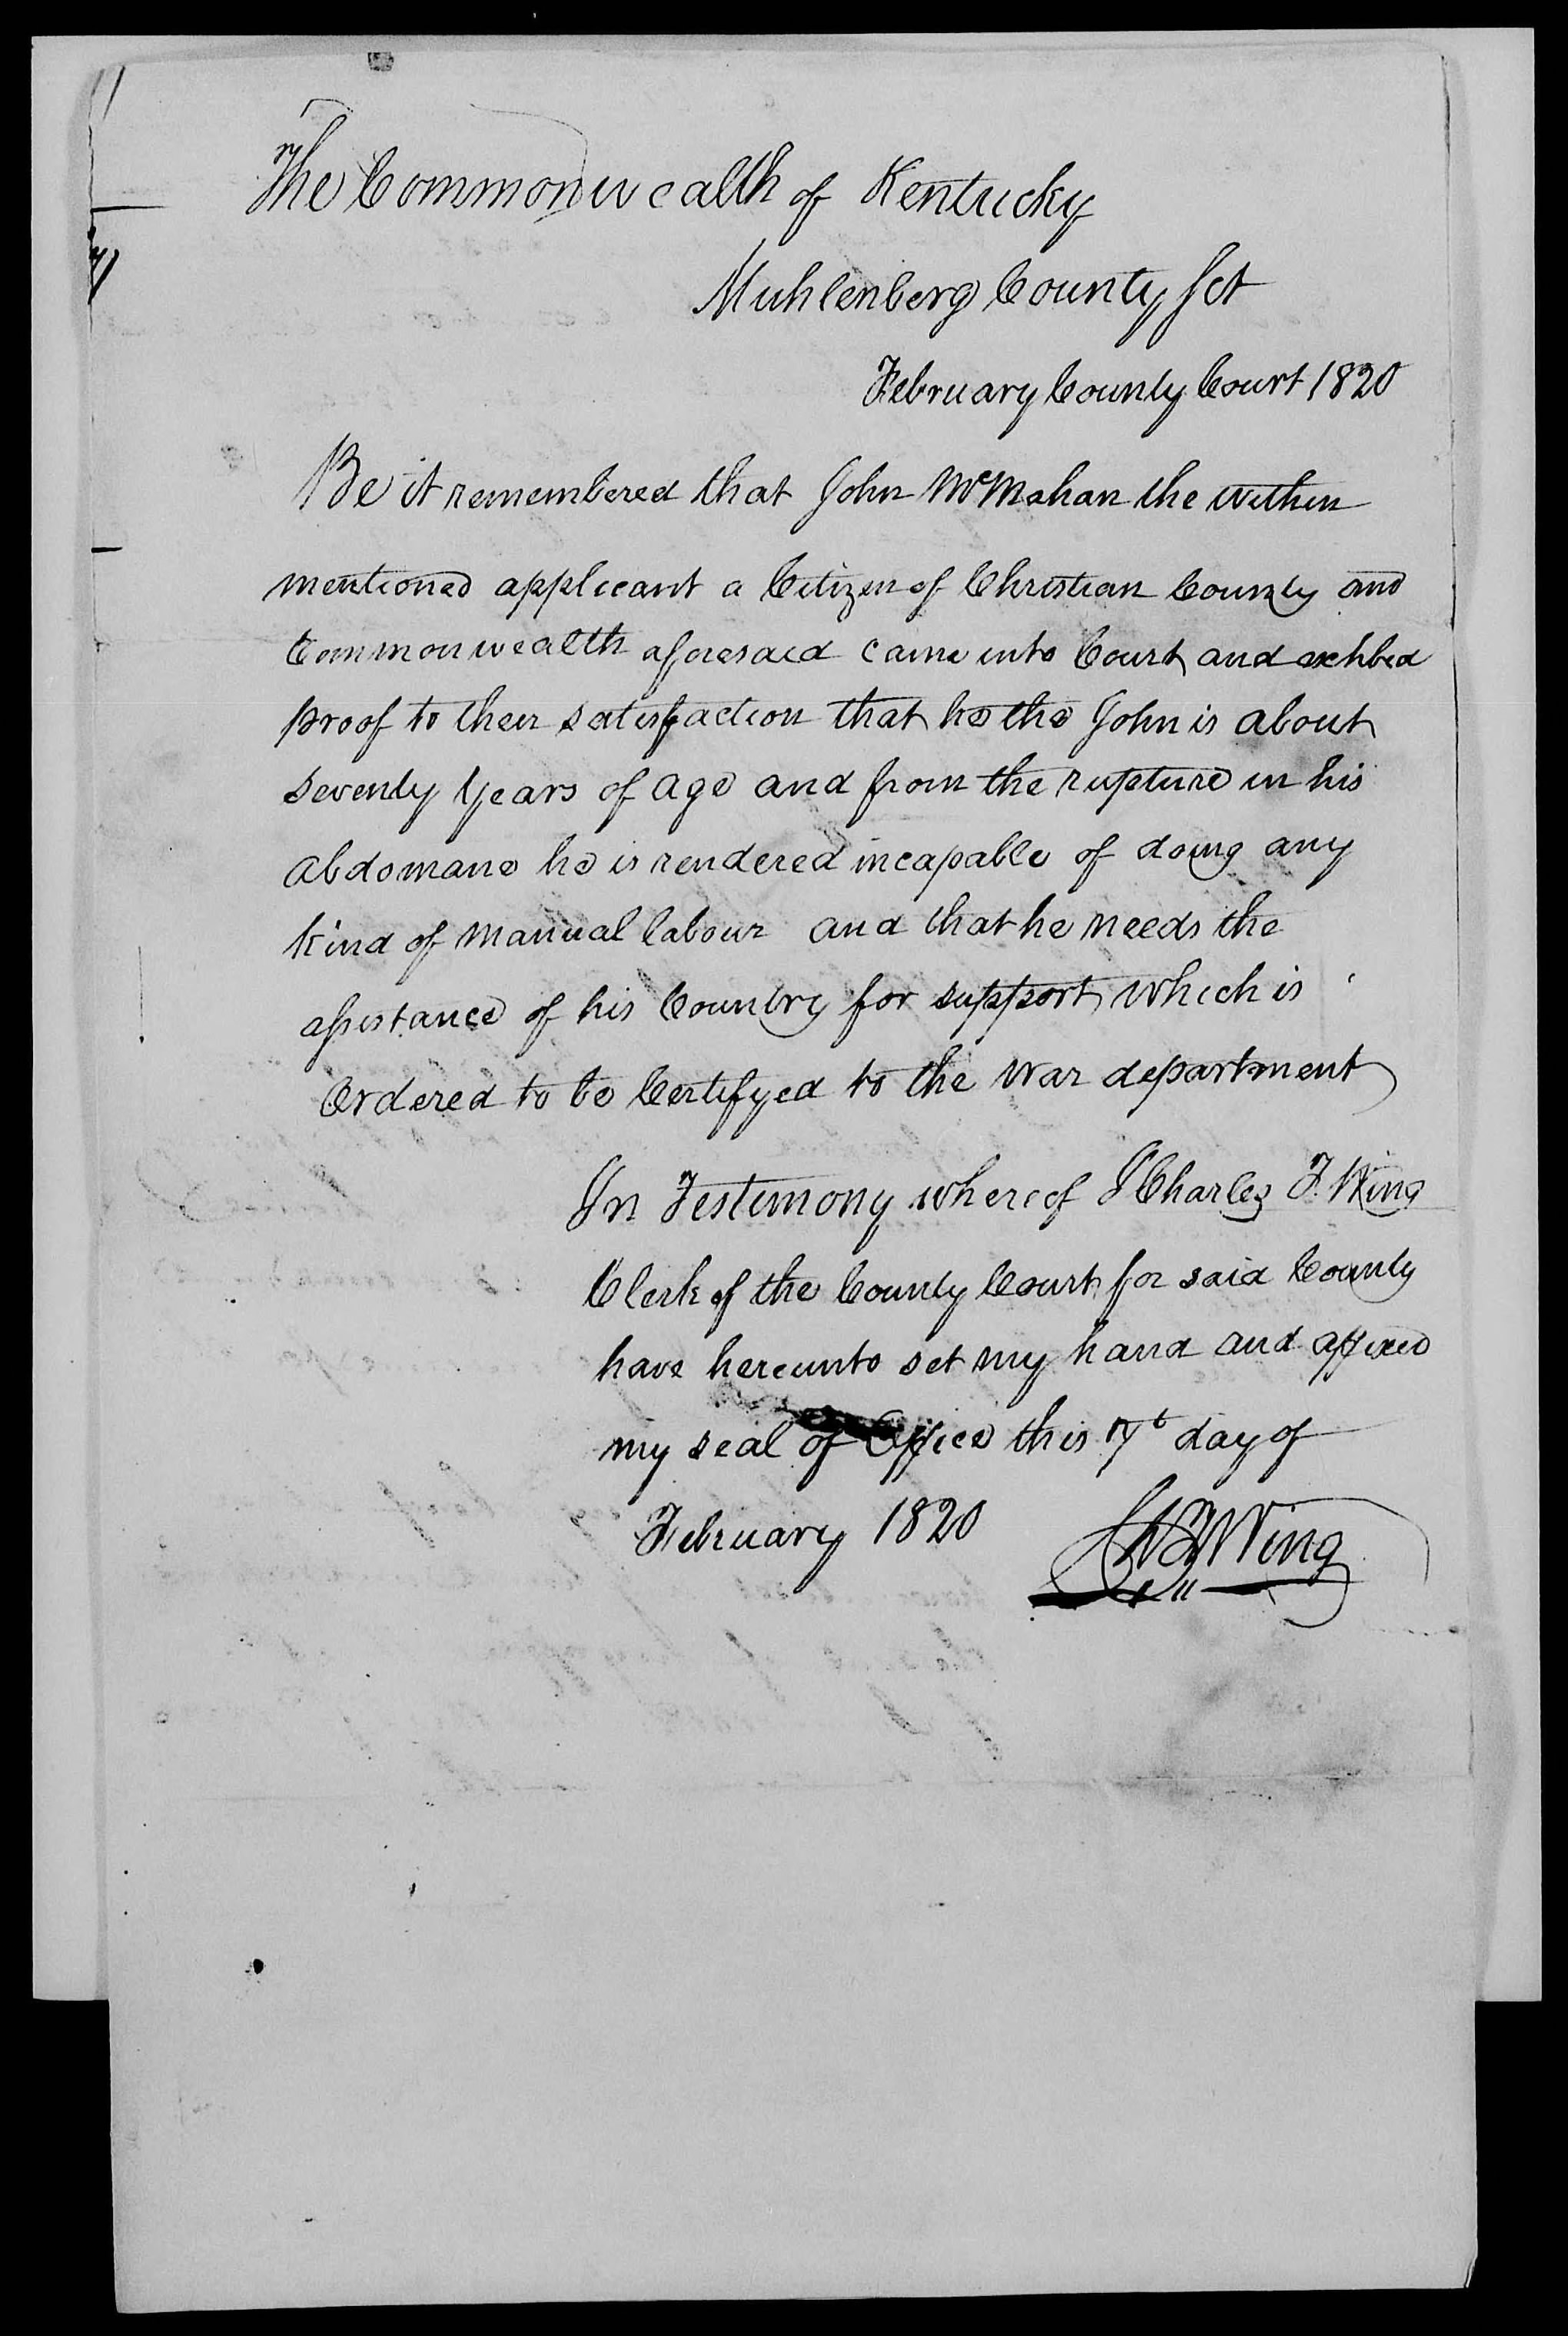 The Commonwealth of Kentucky
Muhlenberg County Sct
February County Court 1820
Be it remembered that John McMahan the within
mentioned applicant a Citizen of Christian County and
Commonwealth aforesaid came into Court and exhbed
proof to their satisfaction that he the John is about
seventy years of age and from the rupture in his
abdomane he is rendered incapable of doing any
kind of manual labour and that he needs the
assistance of his Country for support which is
Ordered to be Certifyed to the War department
In Testimony whereof I Charles F. Wing
Clerk of the County Court for said County
have hereunto set my hand and affixed
my seal of Office this 7t day of
February 1820 Ch F Wing